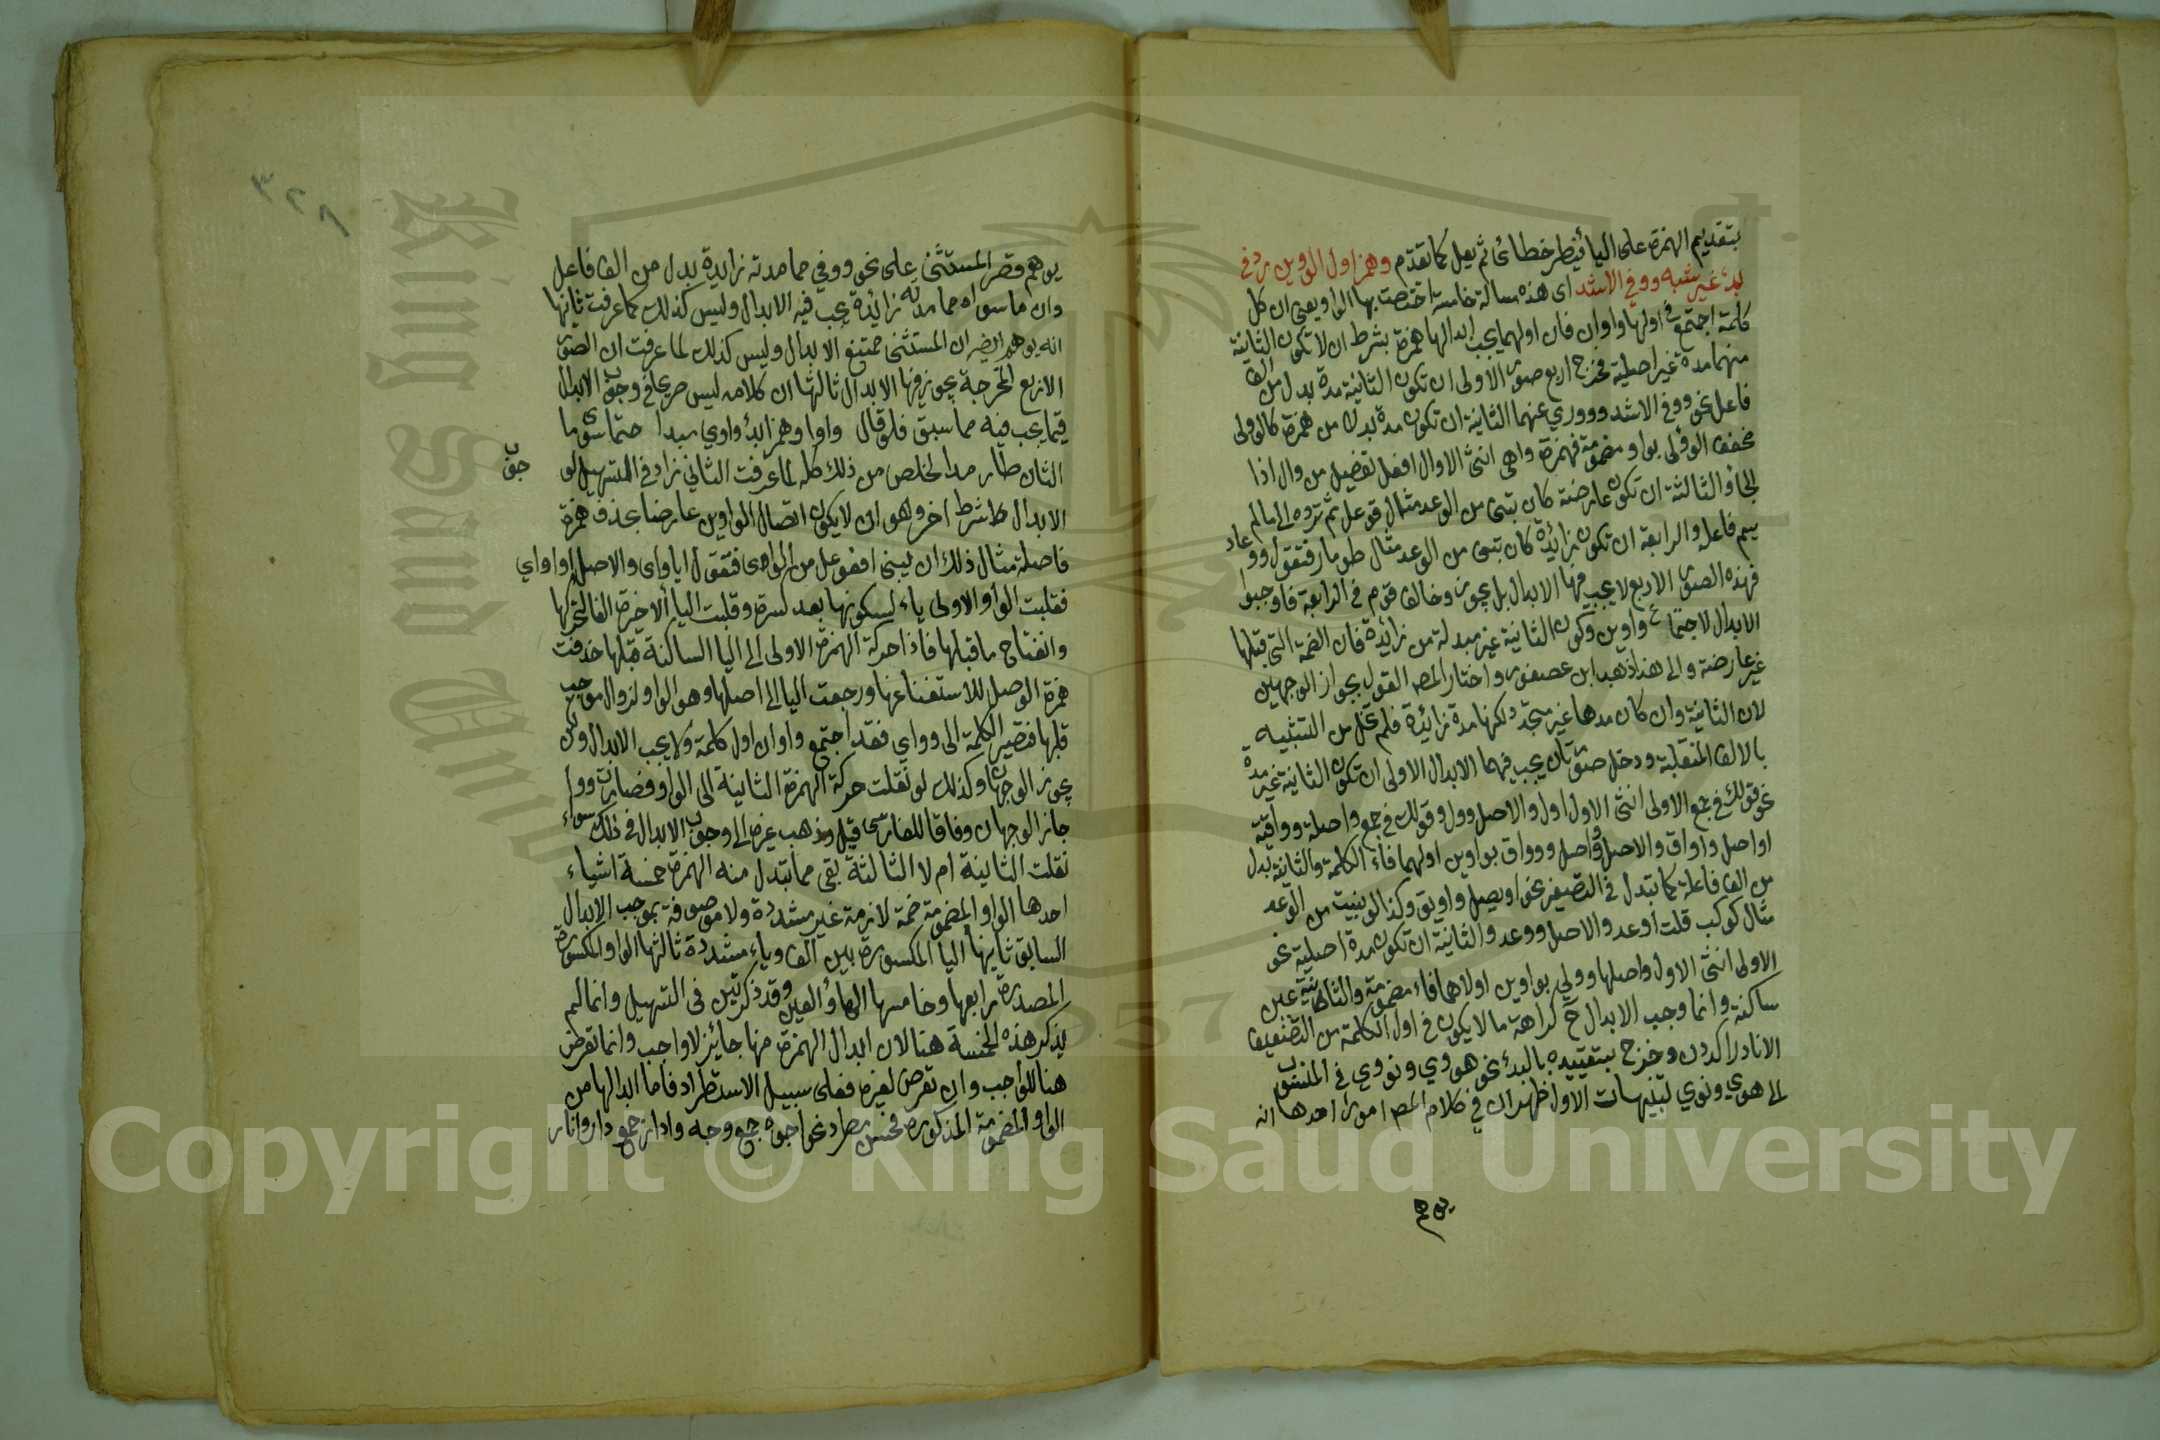 بتقديم الهمزة على اليا فيظر خطائ ثم يعل كما تقدم وهمزا اول الواوين رد في
بدء غير شبه ووفي الاشد اى هذه مسالة خامسة اختصت بها الواو يعنى ان كل
كلمة اجتمع في اولها واوان فان اولهما يجب ابدالها همزة بشرط ان لا تكون الثانية
منهما مدة غير اصلية فخرج اربع صور الاولى ان تكون الثانية مدة بدل من الف
فاعل نحو ووفى الاشد وووري عنهما الثانية ان تكون مدة بدلا من همزة كالوولى
مخفف الوولى بواو مضمومة فهمزة واهى انثى الاوال افعل تفضيل من وال اذا
لجا والثالثة ان تكون عارضة كان تبنى من الوعد مثال فوعل ثم ترده الى مالم
يسم فاعله والرابعة ان تكون زائدة كان تبنى من الوعد مثال طومار فتقول ووعاد
فهذه الصور الاربع لا يجب فيها الابدال بل يجوز وخالف قوم في الرابعة فاوجبوا
الابدال لاجتماع واوين وتكون الثانية غير مبدلة من زائدة فان الضمة التى قبلها
غير عارضة والى هذا ذهب ابن عصفور واختار المصـ القول بجواز الوجهين
لان الثانية وان كان مدها غير متجدد لكنها مدة زائدة فلم تخل من التشبيه
بالالف المنقلبة ودخل صورتان يجب فيهما الابدال الاولى ان تكون الثانية غير مدة
نحو قولك في جمع الاولى انثى الاول اول والاصل وول وقولك في جمع واصلة وواقية
اواصل واواق والاصل وواصل وووواق بواوين اولهما فاء الكلمة والثانية بدل
من الف فاعلة كما تبدل في التصغير نحو اويصل واويق وكذا لو بنيت من الوعد
مثال كوكب قلت اوعد والاصل ووعد والثانية ان تكون مدة اصلية نحو
الاولى انثى الاول واصلها وولى بواوين اولاهما فاء مضمومة والثانية عين
ساكنة وانما وجب الابدال ح كراهة ما لا يكون في اول الكلمة من التضعيف
الا نادرا كددن وخرج بتقييده بالبدء نحو هووي ونووي في المنسوب
الى هوي ونوي تنبيهات الاول ظهر ان في كلام المصـ امورا احدها انه
يوهم
٣٢٨
يوهم قصر المستثنى على نحو ووفي مما مدته زايدة بدل من الف فاعل
وان ما سواه مما مدته زائدة يجب فيه الابدال وليس كذلك كما عرفت ثانيها
انه يوهم ايضا ان المستثنى ممتنع الابدال وليس كذلك لما عرفت ان الصور
الاربع المخرجة يجوز فيها الابدال ثالثها ان كلامه ليس صريحا في وجوب الابدال
فيما يجب فيه مما سبق فلو قال واوا وهمزا بدؤ واوي مبدا حتما سوى ما
الثان طار مدا لخلص من ذلك كله لما عرفت الثاني زاد في التسهيل لو جوب
الابدال شرطا اخر وهو ان لا يكون اتصال الواوين عارضا بحذف همزة
فاصلة مثال ذلك ان يبنى افعوعل من الواى فتقول ايأوأى والاصل اوأوأي
فقلبت الواو الاولى ياء لسكونها بعد كسرة وقلبت اليا الاخيرة الفا لتحركها
وانفتاح ما قبلها فاذا حركة الهمزة الاولى الى اليا الساكنة قبلها حذفت
همزة الوصل للاستغناء عنها ورجعت اليا الى اصلها وهو الواو لزوال موجب
قلبها فتصير الكلمة الى وواي فقد اجتمع واوان اول كلمة ولا يجب الابدال ولكن
يجوز الوجهان وكذلك لو نقلت حركة الهمزة الثانية الى الواو فصارت ووا
جاز الوجهان وفاقا للفارسى قيل وذهب غيره الى وجوب الابدال في ذلك سواء
نقلت الثانية ام لا الثالثة بقى مما تبدل منه الهمزة خمسة اشياء
احدها الواو المضمومة ضمة لازمة غير مشددة ولا موصوفة بموجب الابدال
السابق ثانيها اليا المكسورة بين الف وياء مشددة ثالثها الواو المكسورة
المصدرة رابعها وخامسها الهاء والعين وقد ذكرتهن في التسهيل وانما لم
يذكر هذه الخمسة هنا لان ابدال الهمزة منها جايز لا واجب وانما تعرض
هنا للواجب وان تعرض لغيره فعلى سبيل الاستطراد فاما ابدالها من
الواو المضمومة المذكورة فحسن مطرد نحو اجوه جمع وجه وادار جمع دار وانار